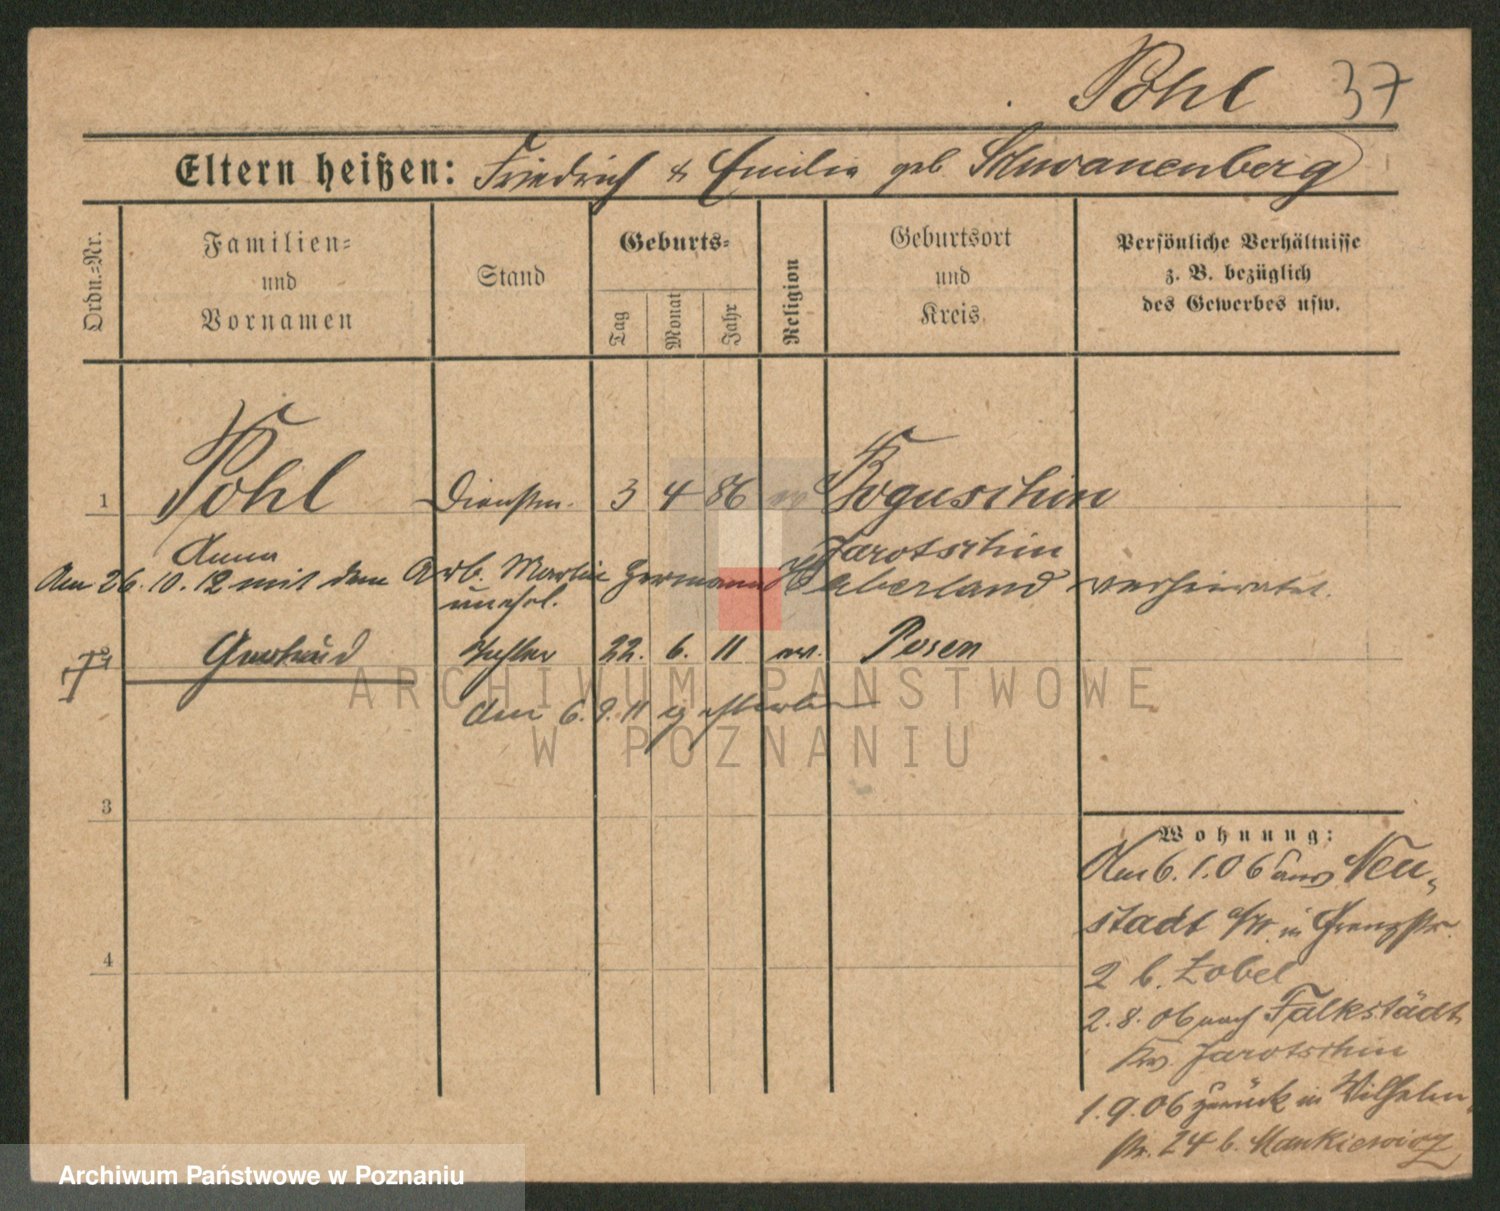 Pohl 37
Eltern heißen: Friedrich & Emilie geb Schwanenberg
Ordn.=Nr.
Familien=
und
Vornamen
Stand
Geburts=
Tag
Monat
Jahr
Religion
Geburtsort
und
Kreis
Persönliche Verhältnisse
z. B. bezüglich
des Gewerbes usw.
1 Pohl Dienstm. 3 4 86 ev Boguschin
Anna Jarotschin
Am 26.10.12 mit dem Arb. Martin Hermann Haberland verheiratet.
unehl.
Gertrud Tochter 22. 6. 11 ev. Posen
am 6.9.11 gestorben
3
4
Wohnung:
Am 6.1.06 aus Neu-
stadt a/W. in Grenzstr.
2 b. Zobel
2.8.06 nach Falkstädt
Kr. Jarotschin
1.9.06 zurück in Wilhelm-
str. 24 b. Mankiewicz
ARCHIWUM PAŃSTWOWE
W POZNANIU
Archiwum Państwowe w Poznaniu